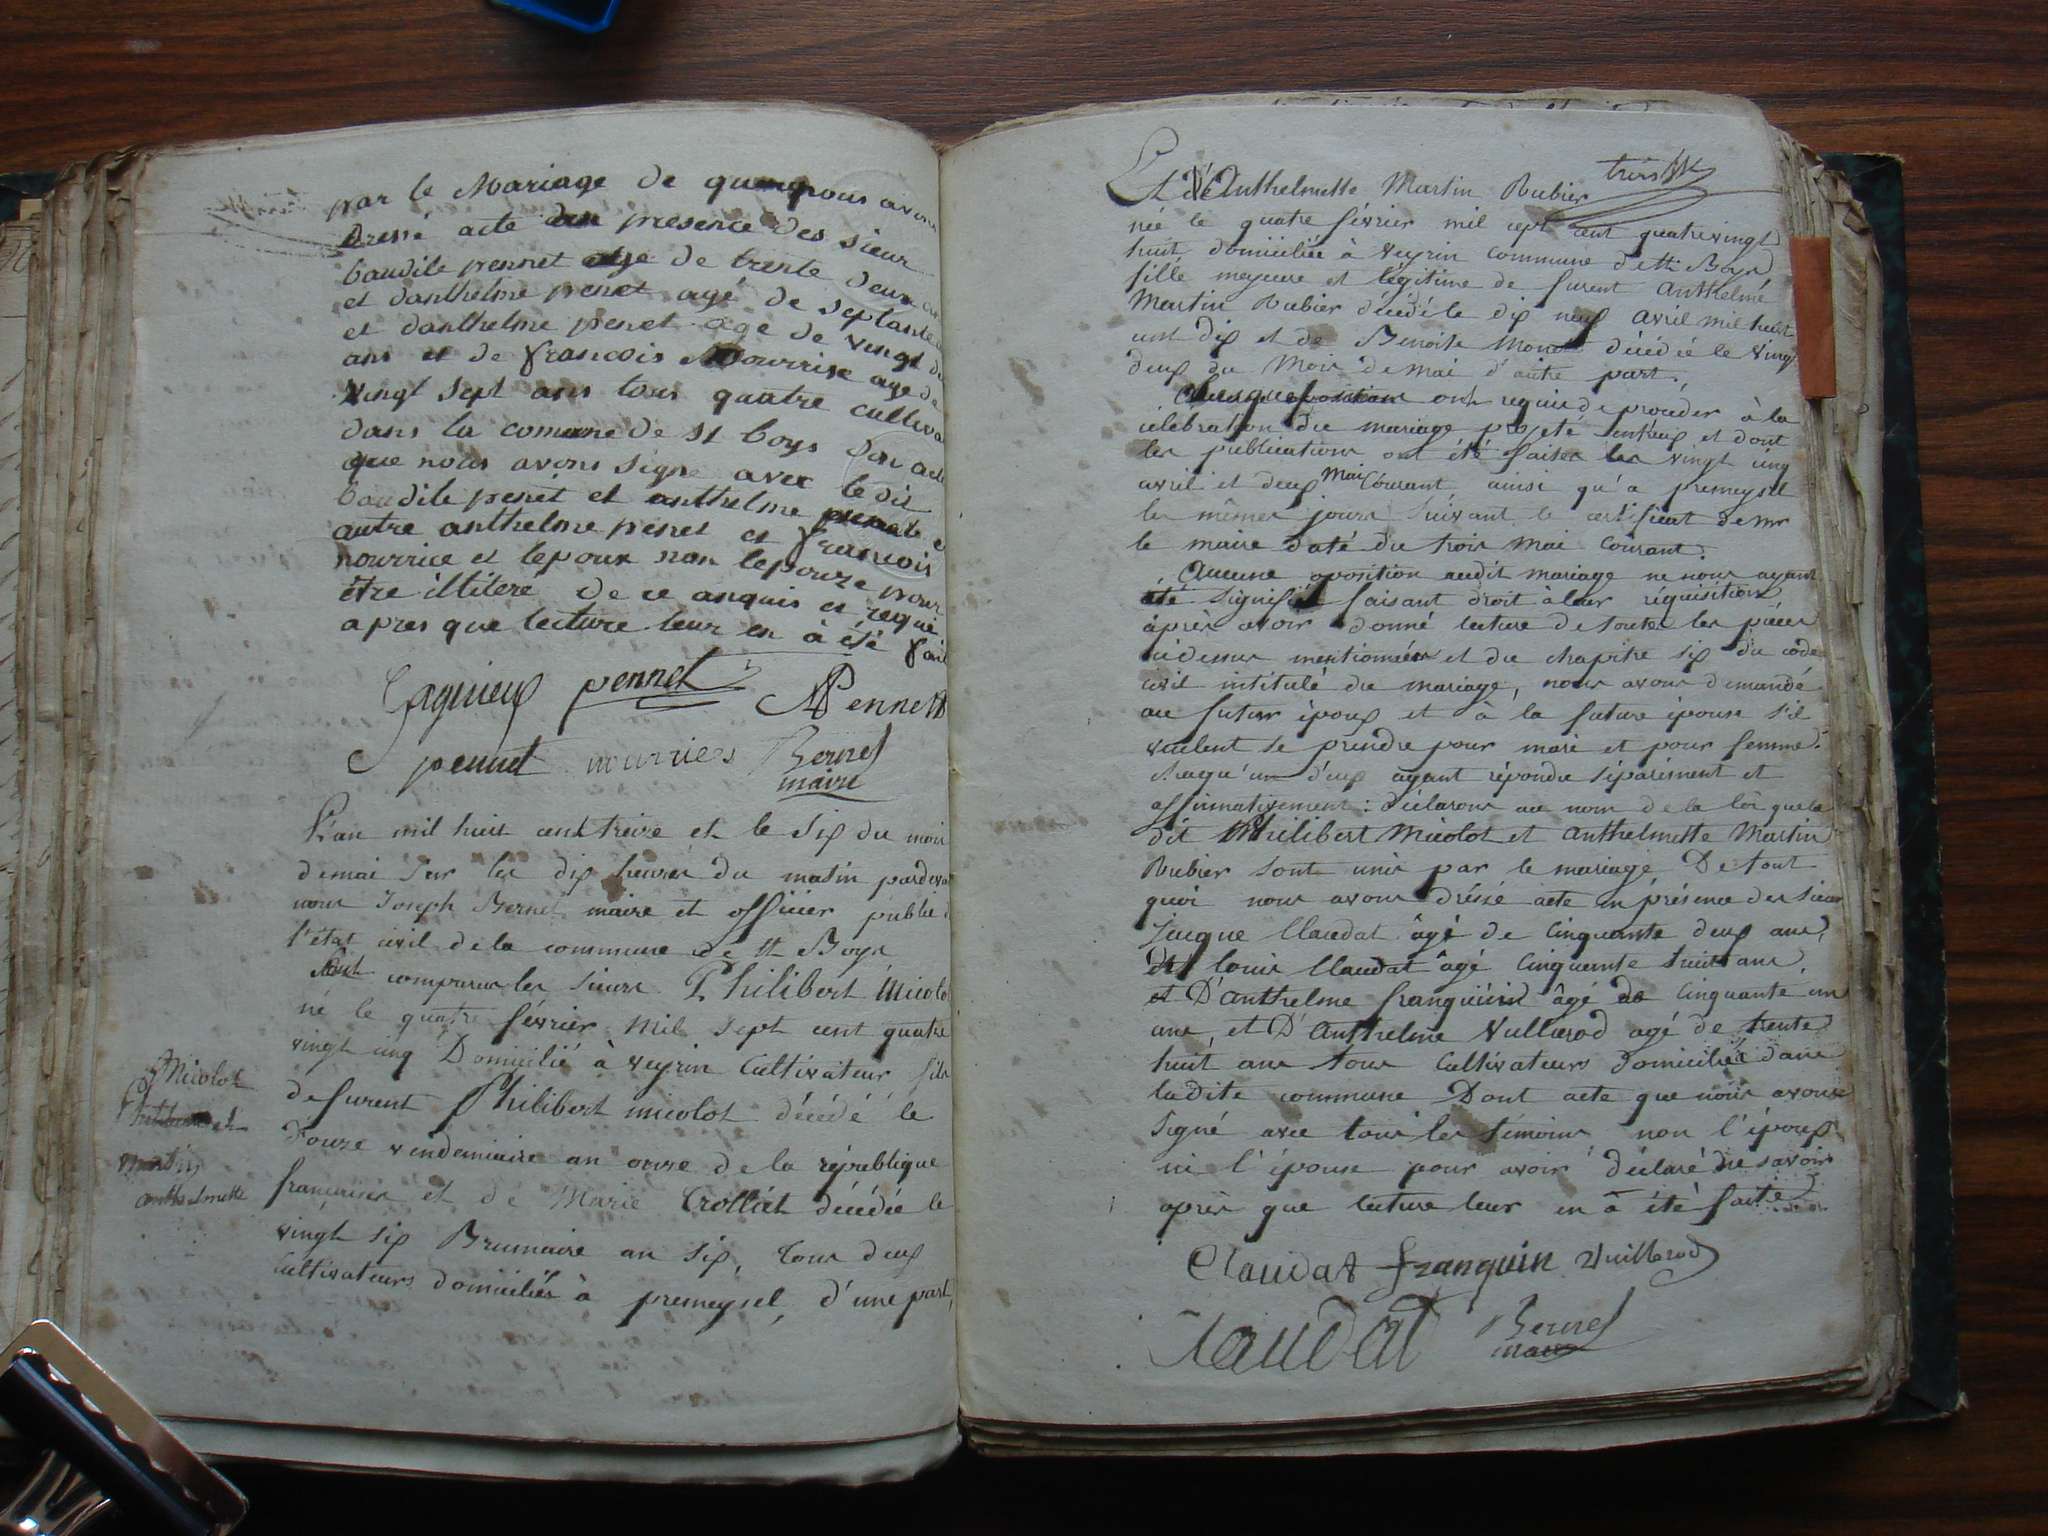 par le Mariage de quoy nous avons
dressé acte en presence des sieur
baudile pennet age de trente deux ans
et danthelme penet agé de septante
et danthelme penet age de vingt
ans et de francois Nourrise age de
vingt sept ans tous quatre cultiva
dans la comune de st boys Don acte
que nous avons signe avec le dit
baudile penet et anthelme penet
autre anthelme penet et francois
nourrice et lepoux non lepouze pour
être illitere de ce anquis et requi
apres que lecture leur en à été fait
Gagnieux pennet APennet
pennet nourries Bernel
maire
L'an mil huit cent treize et le six du mois
de mai sur les dix heures du matin pardevant
nous Joseph Bernel maire et officier public
l'état civil de la commune de St Boys
Sont comparus les sieurs Philibert Micolot
né le quatre février mil sept cent quatre
vingt cinq Domicilié à veyrin Cultivateur fils
de furent Philibert micolot décédé le
douze vendemiaire an onze de la république
française et de Marie Trolliet décédée le
vingt six Brumaire an six, tous deux
cultivateurs domiciliés à premeysel, d'une part,
Micolot
Philibert et
Martin
anthelmette
trois
Et de Anthelmette Martin Rubier
née le quatre février mil sept cent quatrevingt
huit domiciliée à veyrin commune de St Boys
fille mejeure et légitime de furent Anthelme
Martin Rubier décédé le dix neuf avril mil huit
cent dix et de Benoite Monet décédée le vingt
deux du mois de mai d'autre part.
ont requis de procéder à la
célébration du mariage projeté entreux et dont
les publications ont été faites les vingt cinq
avril et deux Mai Courant ainsi qu'a premeysel
les mêmes jours suivant le certificat de mr
le maire daté du trois mai courant.
Aucune oposition audit mariage ne nous ayant
été signifié faisant droit à leur réquisition
après avoir donné lecture de toutes les pièces
cidessus mentionnées et du chapitre six du code
civil intitulé du mariage, nous avons demandé
au futur époux et à la future épouse s'il
veulent se prendre pour mari et pour femme.
chaqu'un d'eux ayant répondu séparément et
affirmativement: déclarons au nom de la loi que le
dit Philibert Micolot et Anthelmette Martin
Rubier sont unis par le mariage. De tout
quoi nous avons dréssé acte en présence des sieur
Jacque Claudat âgé de Cinquante deux ans,
de louis Claudat âgé Cinquante huit ans
et D'anthelme franquin âgé de Cinquante un
ans, et D'anthelme Vullierod agé de trente
huit ans tous Cultivateurs Domiciliés dans
la dite commune Dont acte que nous avons
signé avec tous les témoins non l'époux
ni l'épouse pour avoir déclaré ne savoir
après que lecture leur en à été faite
Claudat franquin Vuillerod
Claudat Bernel
maire